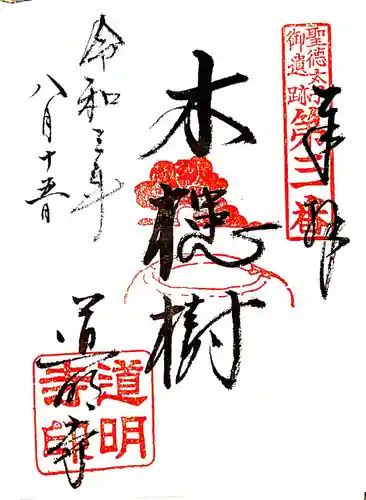 聖徳太子
御遺跡
第三番
奉拝
木槵樹
道明寺
道明
寺印
令和三年
八月十五日